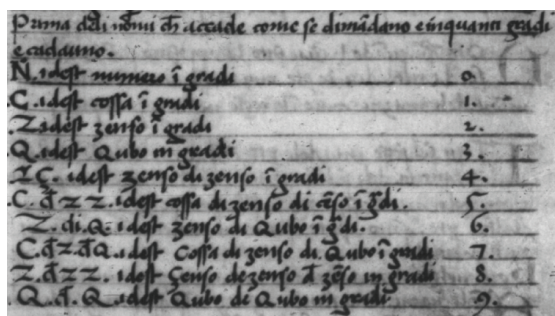 Prima de li nomi ch̄ accade come se dimādano e inquanti gradi
e cadauno.
N. idest numero ī gradi 0.
C. idest cossa ī gradi 1.
Z idest zenso ī gradi 2.
Q. idest Qubo in gradi 3.
Z Z. idest zenso di zenso ī gradi 4.
C. d̄ z z. idest cossa di zenso di cēso ī gradi. 5.
Z. di. Q. idest zenso di Qubo ī gdi. 6.
C. d̄ z. d̄ Q. idest Cossa di zenso di Qubo ī gradi 7.
Z. d̄ z z. idest Censo de zenso d̄ zēso in gradi 8.
Q. d̄. Q. idest Qubo de Qubo in gradi 9.